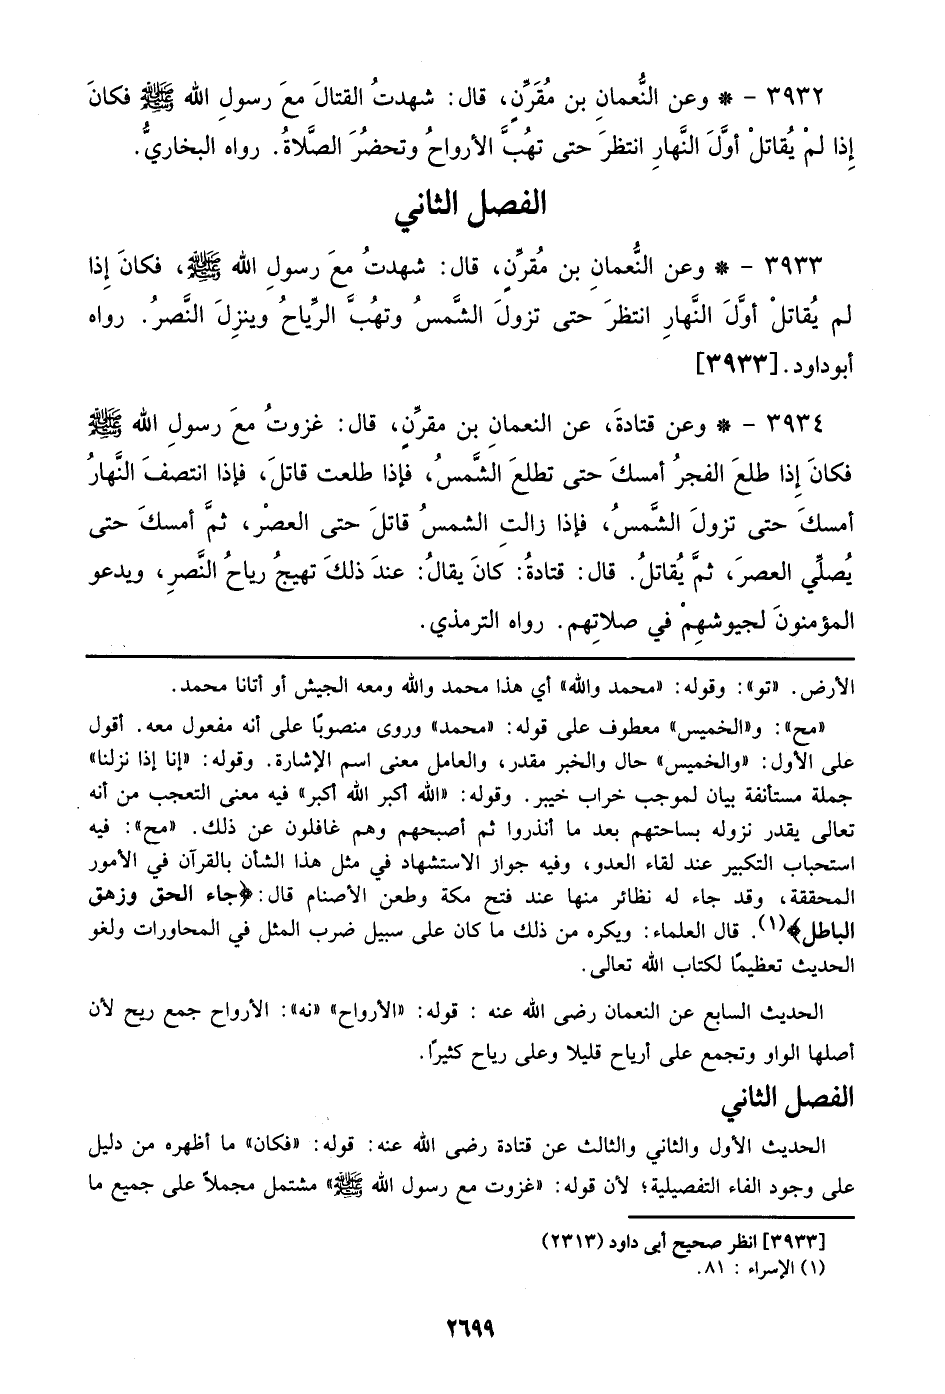 ٣٩٣٢ – * وعن النُّعمانِ بن مُقَرِّنٍ، قال: شهدتُ القتالَ معَ رسولِ الله ﷺ فكانَ
إذا لمْ يُقاتلْ أوَّلَ النَّهارِ انتظرَ حتى تهُبَّ الأرواحُ وتحضُرَ الصَّلاةُ. رواه البخاريُّ.
الفصل الثاني
٣٩٣٣ – * وعن النُّعمانِ بن مُقرِّنٍ، قال: شهدتُ معَ رسولِ الله ﷺ، فكانَ إذا
لم يُقاتلْ أوَّلَ النَّهارِ انتظرَ حتى تزولَ الشَّمسُ وتهُبَّ الرِّياحُ وينزِلَ النَّصرُ. رواه
أبوداود. [٣٩٣٣]
٣٩٣٤ – * وعن قتادةَ، عن النعمان بن مقرِّنٍ، قال: غزوتُ معَ رسولِ الله ﷺ
فكانَ إذا طلعَ الفجرُ أمسكَ حتى تطلعَ الشَّمسُ، فإذا طلعت قاتلَ، فإذا انتصفَ النَّهارُ
أمسكَ حتى تزولَ الشَّمسُ، فإذا زالتِ الشمسُ قاتلَ حتى العصْر، ثمَّ أمسكَ حتى
يُصلِّي العصرَ، ثمَّ يُقاتلُ. قال: قتادةُ: كانَ يقالُ: عندَ ذلكَ تهيجُ رياحُ النَّصرِ، ويدعو
المؤمنونَ لجيوشهِمْ في صلاتِهم. رواه الترمذي.
الأرض. «تو»: وقوله: «محمد والله» أي هذا محمد والله ومعه الجيش أو أتانا محمد.
«مح»: و«الخميس» معطوف على قوله: «محمد» وروى منصوبًا على أنه مفعول معه. أقول
على الأول: «والخميس» حال والخبر مقدر، والعامل معنى اسم الإشارة. وقوله: «إنا إذا نزلنا»
جملة مستأنفة بيان لموجب خراب خيبر. وقوله: «الله أكبر الله أكبر» فيه معنى التعجب من أنه
تعالى يقدر نزوله بساحتهم بعد ما أنذروا ثم أصبحهم وهم غافلون عن ذلك. «مح»: فيه
استحباب التكبير عند لقاء العدو، وفيه جواز الاستشهاد في مثل هذا الشأن بالقرآن في الأمور
المحققة، وقد جاء له نظائر منها عند فتح مكة وطعن الأصنام قال: ﴿جاء الحق وزهق
الباطل﴾(١). قال العلماء: ويكره من ذلك ما كان على سبيل ضرب المثل في المحاورات ولغو
الحديث تعظيمًا لكتاب الله تعالى.
الحديث السابع عن النعمان رضى الله عنه : قوله: «الأرواح» «نه»: الأرواح جمع ريح لأن
أصلها الواو وتجمع على أرياح قليلا وعلى رياح كثيرًا.
الفصل الثاني
الحديث الأول والثاني والثالث عن قتادة رضى الله عنه: قوله: «فكان» ما أظهره من دليل
على وجود الفاء التفصيلية؛ لأن قوله: «غزوت مع رسول الله ﷺ» مشتمل مجملاً على جميع ما
[٣٩٣٣] انظر صحيح أبى داود (٢٣١٣)
(١) الإسراء : ٨١.
٢٦٩٩